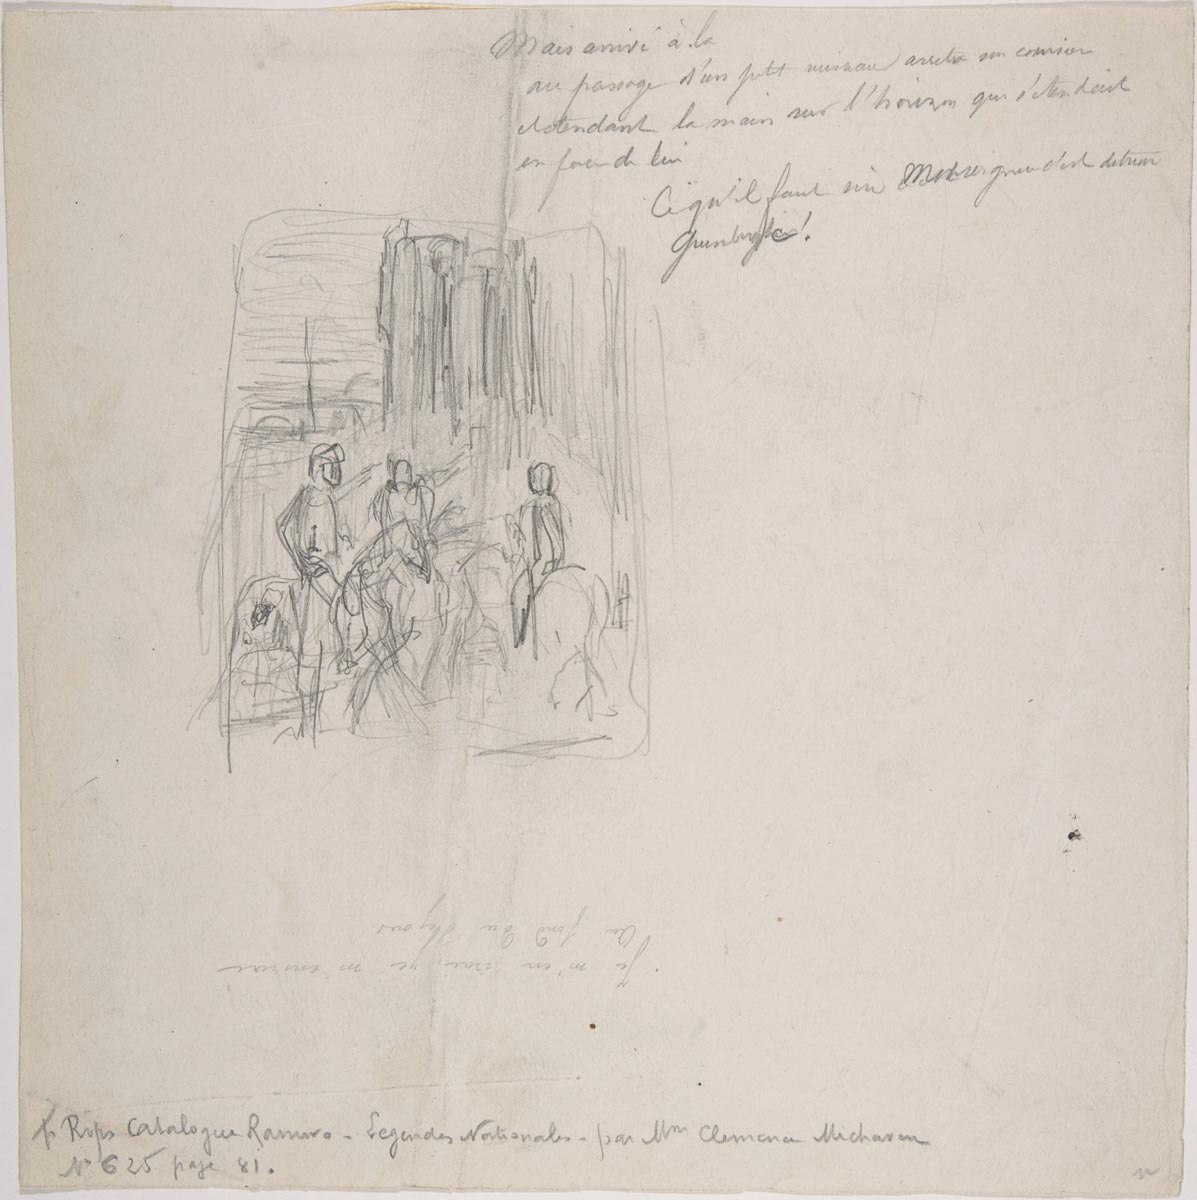 Mais arrivé à la
au passage d'un petit ruisseau arreta son coursier
et etendant la main sur l'horizon qui s'etendait
en face de lui
Ce qu'il faut Monseigneur c'est
Je m'en irai, je m'en irai
Au fond du
f. Rops Catalogue Ramiro - Legendes Nationales - par Mme Clemence Micharen
N° 625 page 81.